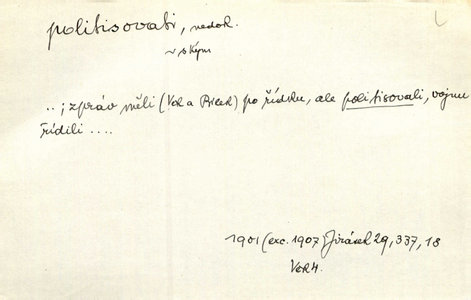 politisovati, nedok.
~ s kým
..; zpráv měli (Vok a Bílek) po řídku, ale politisovali, vojnu
řídili ....
1901 (exc. 1907) Jirásek 29, 337, 18